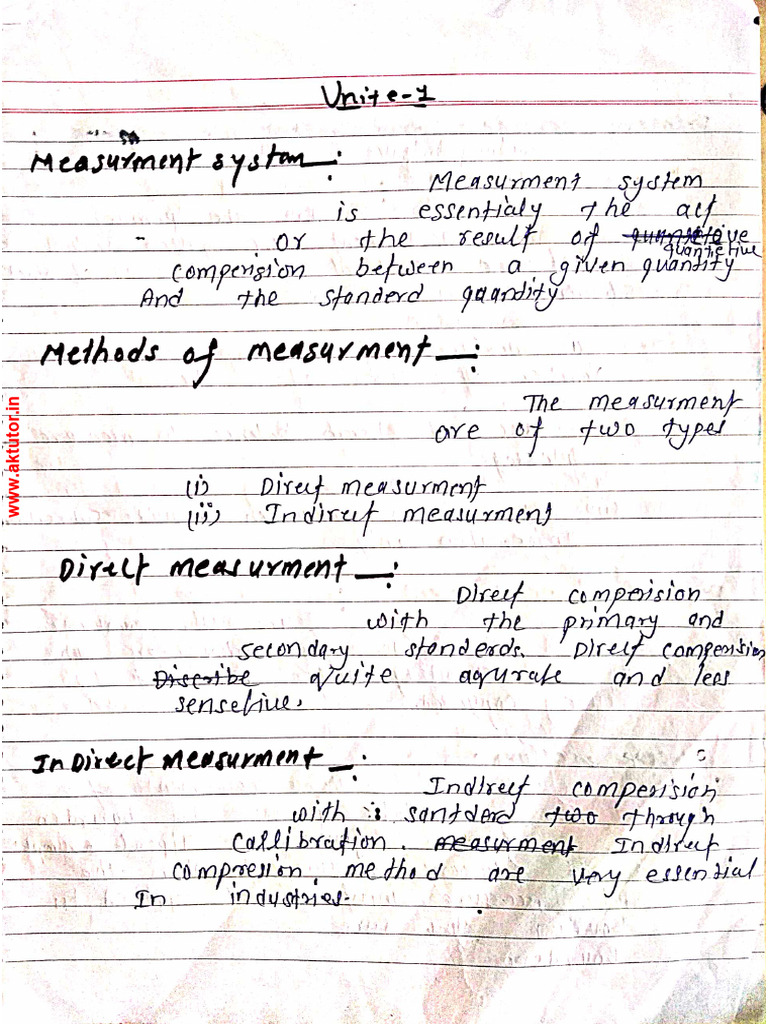 Unite-1
Measurment system—:
Measurment system
is essentialy the act
or the result of quantetive
compension between a given quantity
And the standerd quantity
Methods of measurment—:
The measurment
are of two types
(i) Direct measurment
(ii) Indirect measurment
Direct measurment—:
Direct comperision
with the primary and
secondary standerds. Direct comperision
Discribe quite aqurate and less
sensetive.
InDirect measurment—:
Indirect comperision
with santderd two through
Callibration. measurment Indirect
compresion method are very essential
In industries.
www.aktutor.in